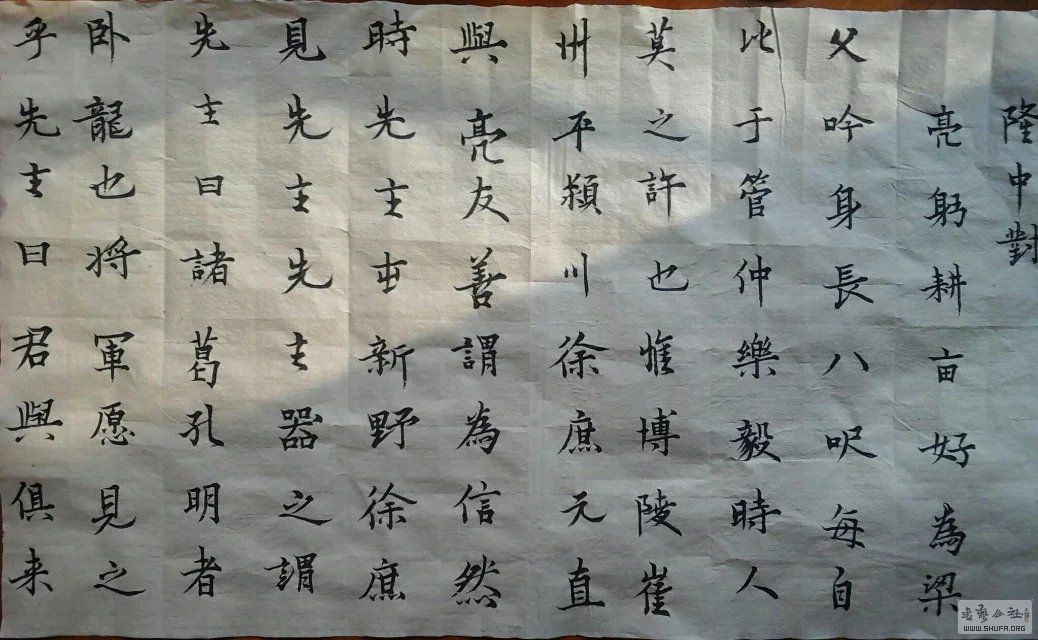 隆中對
亮躬耕亩好為梁
父吟身長八呎每自
比于管仲樂毅時人
莫之許也惟博陵崔
州平潁川徐庶元直
與亮友善謂為信然
時先主屯新野徐庶
見先主先主器之謂
先主曰諸葛孔明者
卧龍也将軍愿見之
乎先主曰君與俱来
书艺公社
WWW.SHUFA.ORG